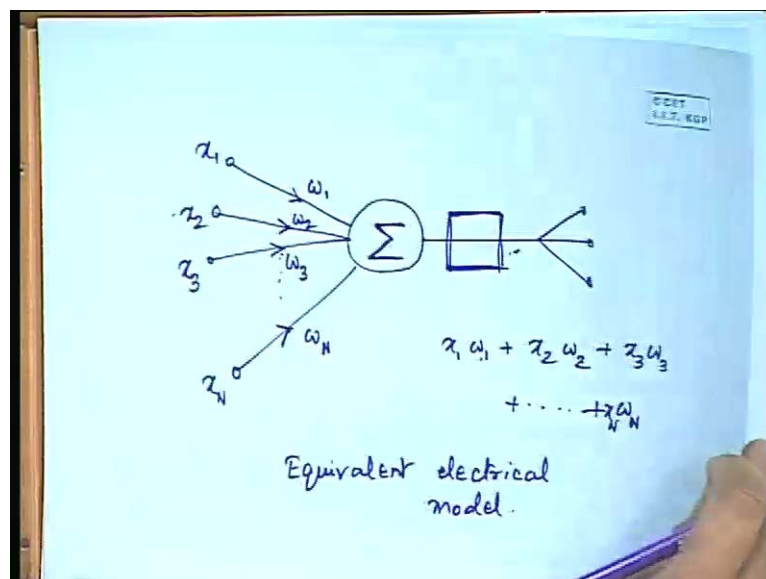 C CET
I.I.T. KGP
x₁ ω₁
x₂ ω₂
x₃ ω₃
Σ
x_N ω_N
x₁ω₁ + x₂ω₂ + x₃ω₃
+ ..... + x_Nω_N
Equivalent electrical
model.